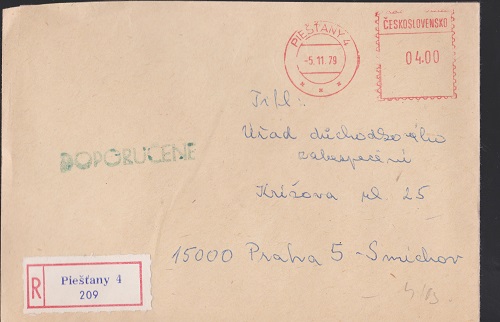 PIEŠŤANY 4
-5.11.79
ČESKOSLOVENSKO
04.00
Úřad důchodového
zabezpečení
Křížova ul. 25
15000 Praha 5 - Smíchov
DOPORUČENĚ
R
Piešťany 4
209